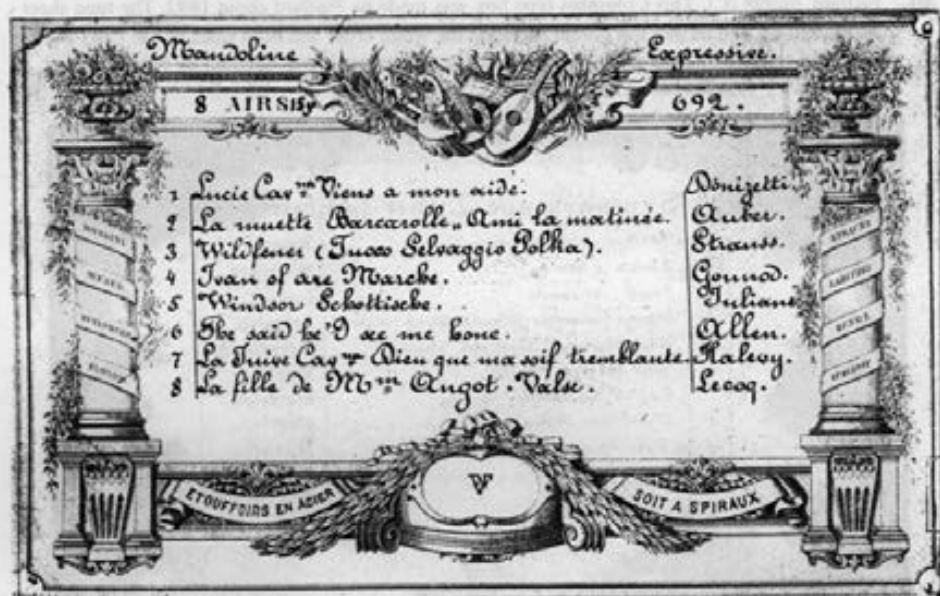 Mandoline Expressive.
8 AIRS 692.
1 Lucie Cav.ne Viens a mon aide. Donizetti.
2 La muette Barcarolle „ Ami la matinée. Auber.
3 Wildfener (Tuoco Selvaggio Polka). Strauss.
4 Ivan of are Marche. Gounod.
5 Windsor Schottische. Juliano
6 She said he'd see me home. Allen.
7 La Juive Cav.ne Dieu que ma soif tremblante. Halevy.
8 La fille de Mme Angot. Valse. Lecoq.
V
ETOUFFOIRS EN ACIER SOIT A SPIRAUX